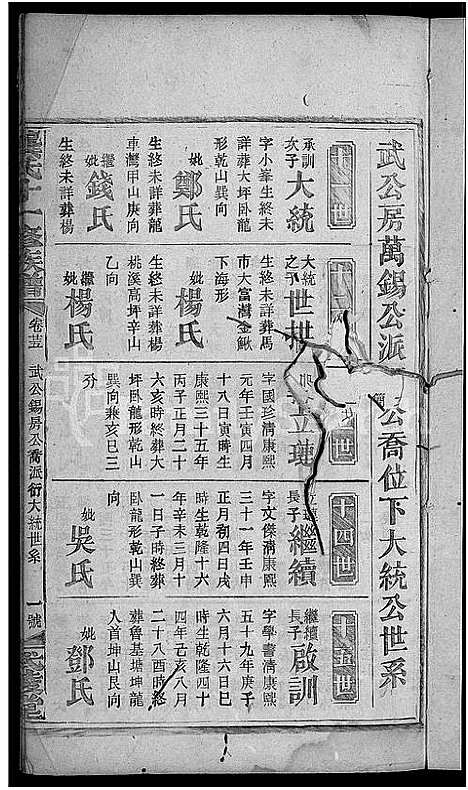 武公房萬錫公派
公喬位下大統公世系
十一世
承訓次子大統
字小峯生終未
詳葬大坪臥龍
形乾山巽向
妣鄭氏
生終未詳葬龍
車灣甲山庚向
繼妣錢氏
生終未詳葬楊
大統之子世
生終未詳葬馬
市大富灣金鰍
下海形
妣楊氏
生終未詳葬辛山
桃溪高坪
乙向
繼妣楊氏
世
子立璉
字國珍清康熙
元年壬寅四月
十八日寅時生
康熙三十五年
丙子正月二十
六亥時終葬大
坪臥龍形乾山
巽向兼亥巳三
分
十四世
長子繼續
字文傑清康熙
三十一年壬申
正月初四日戌
時生乾隆十六
年辛未三月十
一日子時終葬
臥龍形乾山巽
向
妣吳氏
十五世
繼續長子啟訓
字學書清康熙
五十九年庚子
六月十六日巳
時生乾隆四十
四年己亥八月
二十八酉時終
葬魯基塘坤龍
人首坤山艮向
妣鄧氏
氏十一修族譜
卷
武公錫房公喬派衍大統世系
一號